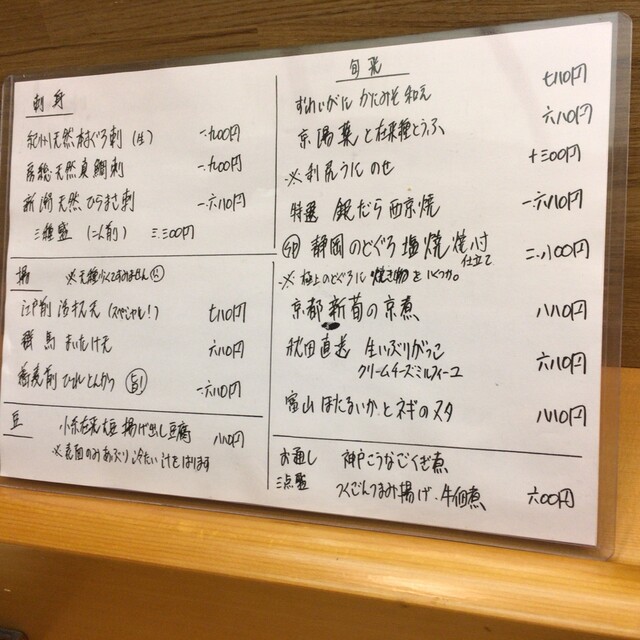 刺身
紀州天然本まぐろ刺(生) 一、九〇〇円
房総天然真鯛刺 一、九〇〇円
新潟天然ひらまさ刺 一、六八〇円
三種盛(二人前) 三、三〇〇円
揚 ※天種少くてすみません
江戸前活才天(スペシャル!) 七八〇円
群馬まいたけ天 六八〇円
蕎麦前ひれとんかつ 一、六八〇円
豆 小糸在来大豆揚げ出し豆腐 八八〇円
※表面のみあぶり冷たい汁をはります
旬菜
ずわいがにかたみそ和え 七八〇円
京湯葉と在来種とうふ 六八〇円
※利尻うにのせ 十三〇〇円
特選 銀だら西京焼 一、六八〇円
静岡のどぐろ塩焼 焼汁仕立て 二、八〇〇円
※極上のどぐろに焼き物をいくつか。
京都新筍の京煮 八八〇円
秋田直送 生いぶりがっこ
クリームチーズミルフィーユ 六八〇円
富山ほたるいかとネギのヌタ 八八〇円
お通し 神戸こうなごくぎ煮
三点盛 つくごんつまみ揚げ・牛佃煮 六〇〇円